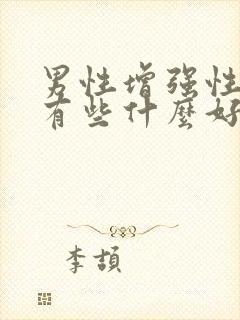 男性增强性
有些什麼好
李頡